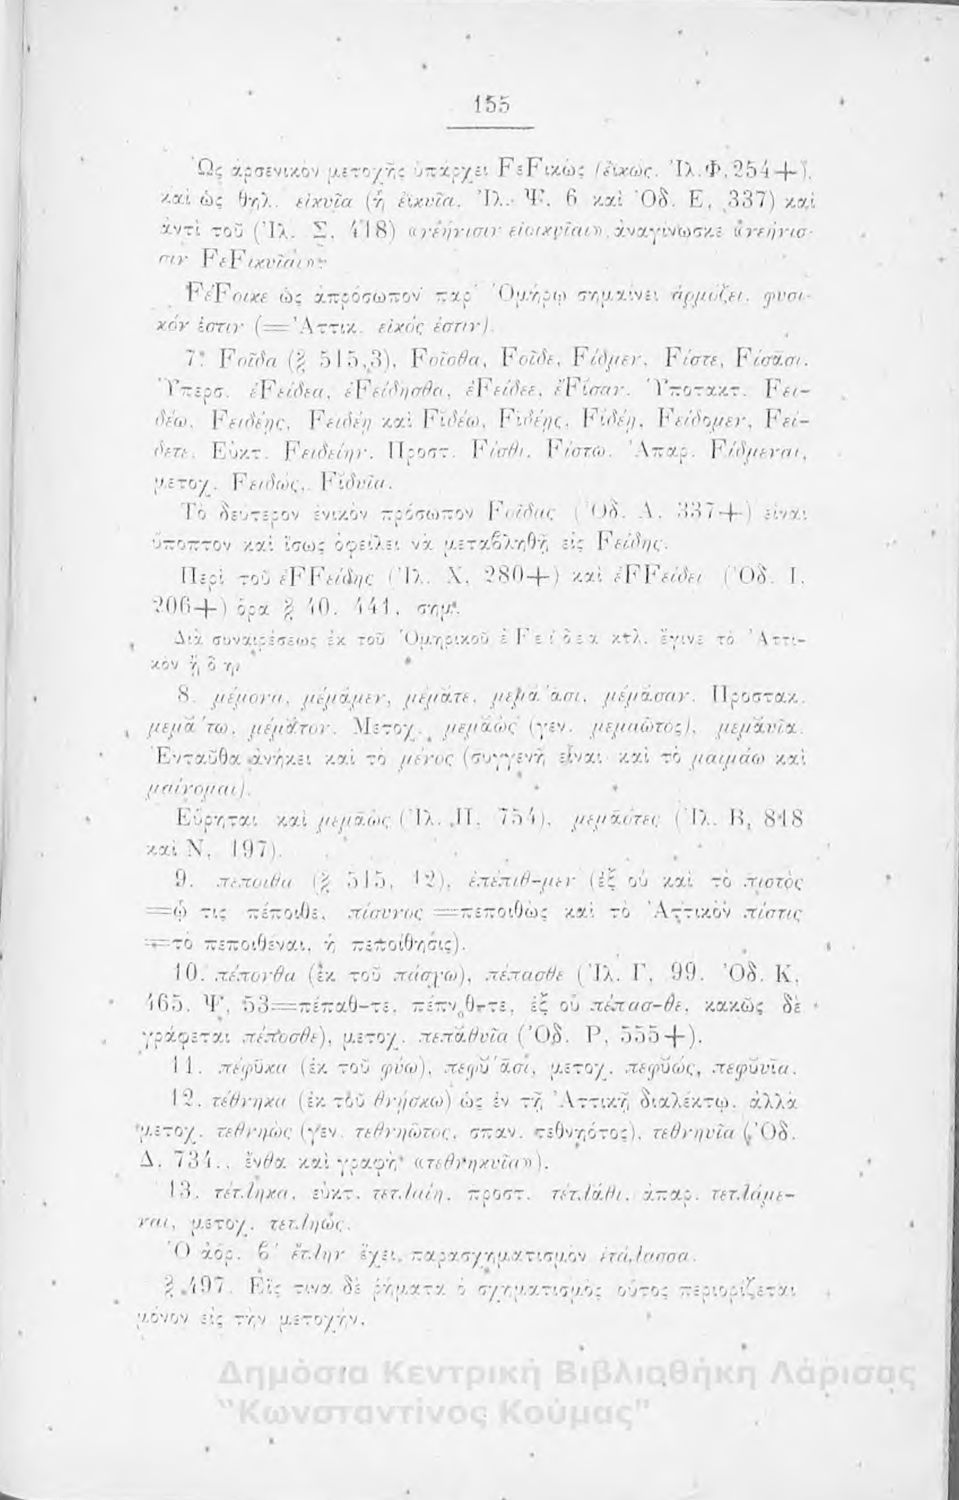 155
Ὡς ἀρσενικὸν μετοχῆς ὑπάρχει FεFικώς (ἐϊκώς. Ἰλ. Φ, 254+),
καὶ ὡς θηλ. εἰκυῖα (ἢ ἐϊκυῖα, Ἰλ. Ψ, 6 καὶ Ὀδ. Ε, 337) καὶ
ἀντὶ τοῦ (Ἰλ. Σ, 418) «νεήνισιν εἰοικυῖαι» ἀναγίνωσκε «νεήνισ-
σιν FεFικυῖαι»·
FέFοικε ὡς ἀπρόσωπον παρ' Ὁμήρῳ σημαίνει ἁρμόζει, φυσι-
κόν ἐστιν (=Ἀττικ. εἰκός ἐστιν).
7. Fοῖδα (§ 515,3), Fοῖσθα, Fοῖδε, Fίδμεν, Fίστε, Fίσασι.
Ὑπερσ. ἐFείδεα, ἐFείδησθα, ἐFείδεε, ἔFισαν. Ὑποτακτ. Fει-
δέω, Fειδέῃς, Fειδέῃ καὶ Fιδέω, Fιδέῃς, Fιδέῃ, Fείδομεν, Fεί-
δετε. Εὐκτ. Fειδείην. Προστ. Fίσθι, Fίστω. Ἀπαρ. Fίδμεναι,
μετοχ. Fειδώς, Fιδυῖα.
Τὸ δεύτερον ἑνικὸν πρόσωπον Fοῖδας (Ὀδ. Α, 337+) εἶναι
ὕποπτον καὶ ἴσως ὀφείλει νὰ μεταβληθῇ εἰς Fείδης.
Περὶ τοῦ ἐFFείδης (Ἰλ. Χ, 280+) καὶ ἐFFείδει (Ὀδ. Ι,
206+) ὅρα § 40. 441, σημ.
Διὰ συναιρέσεως ἐκ τοῦ Ὁμηρικοῦ ἐFείδεα κτλ. ἔγινε τὸ Ἀττι-
κὸν ᾔδη
8. μέμονα, μέμαμεν, μέματε, μεμάασι, μέμασαν. Προστακ.
μεμάτω, μέματον. Μετοχ. μεμαώς (γεν. μεμαῶτος), μεμαυῖα.
Ἐνταῦθα ἀνήκει καὶ τὸ μένος (συγγενῆ εἶναι καὶ τὸ μαιμάω καὶ
μαίνομαι).
Εὕρηται καὶ μεμᾱώς (Ἰλ. Π, 754), μεμᾱότες (Ἰλ. Β, 818
καὶ Ν, 197).
9. πέποιθα (§ 515, 12), ἐπέπιθ-μεν (ἐξ οὗ καὶ τὸ πιστὸς
=ᾧ τις πέποιθε, πίσυνος =πεποιθὼς καὶ τὸ Ἀττικὸν πίστις
=τὸ πεποιθέναι, ἡ πεποίθησις).
10. πέπονθα (ἐκ τοῦ πάσχω), πέπασθε (Ἰλ. Γ, 99. Ὀδ. Κ,
465. Ψ, 53=πέπαθ-τε, πέπνθ-τε, ἐξ οὗ πέπασ-θε, κακῶς δὲ
γράφεται πέποσθε), μετοχ. πεπαθυῖα (Ὀδ. Ρ, 555+).
11. πέφυκα (ἐκ τοῦ φύω), πεφύασι, μετοχ. πεφυώς, πεφυυῖα.
12. τέθνηκα (ἐκ τοῦ θνήσκω) ὡς ἐν τῇ Ἀττικῇ διαλέκτῳ. ἀλλὰ
μετοχ. τεθνηώς (γεν. τεθνηῶτος, σπαν. τεθνηότος), τεθνηυῖα (Ὀδ.
Δ, 734., ἔνθα καὶ γραφὴ «τεθνηκυῖα»).
13. τέτληκα, εὐκτ. τετλαίη, προστ. τέτλαθι, ἀπαρ. τετλάμε-
ναι, μετοχ. τετληώς.
Ὁ ἀόρ. β' ἔτλην ἔχει παρασχηματισμὸν ἐτάλασσα.
§ 497. Εἴς τινα δὲ ῥήματα ὁ σχηματισμὸς οὗτος περιορίζεται
μόνον εἰς τὴν μετοχήν.
Δημόσια Κεντρική Βιβλιοθήκη Λάρισας
"Κωνσταντίνος Κούμας"